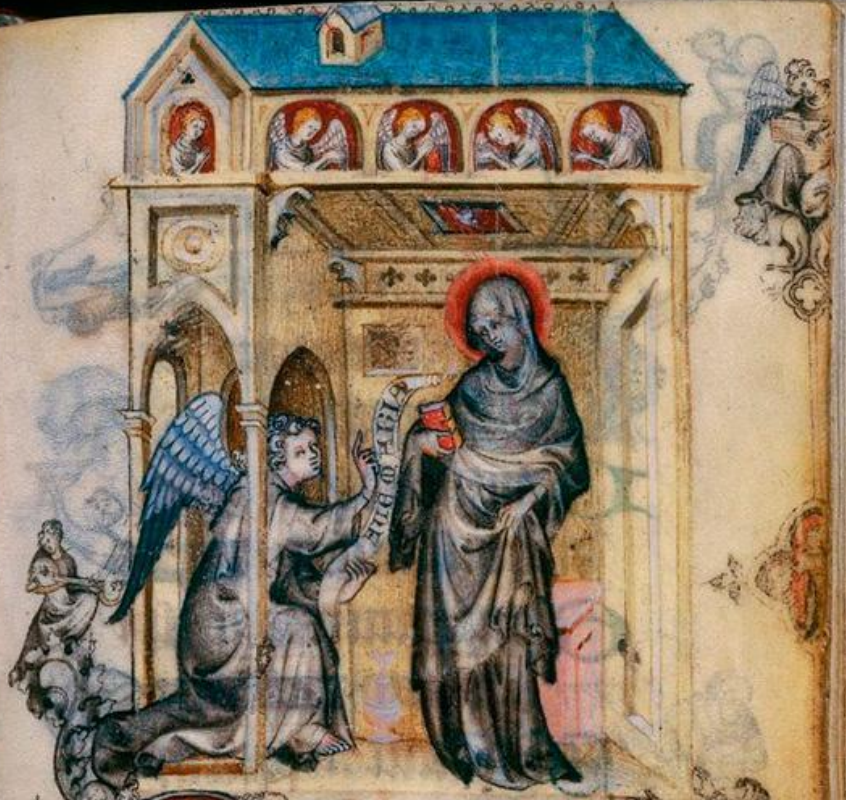 AVE MARIA